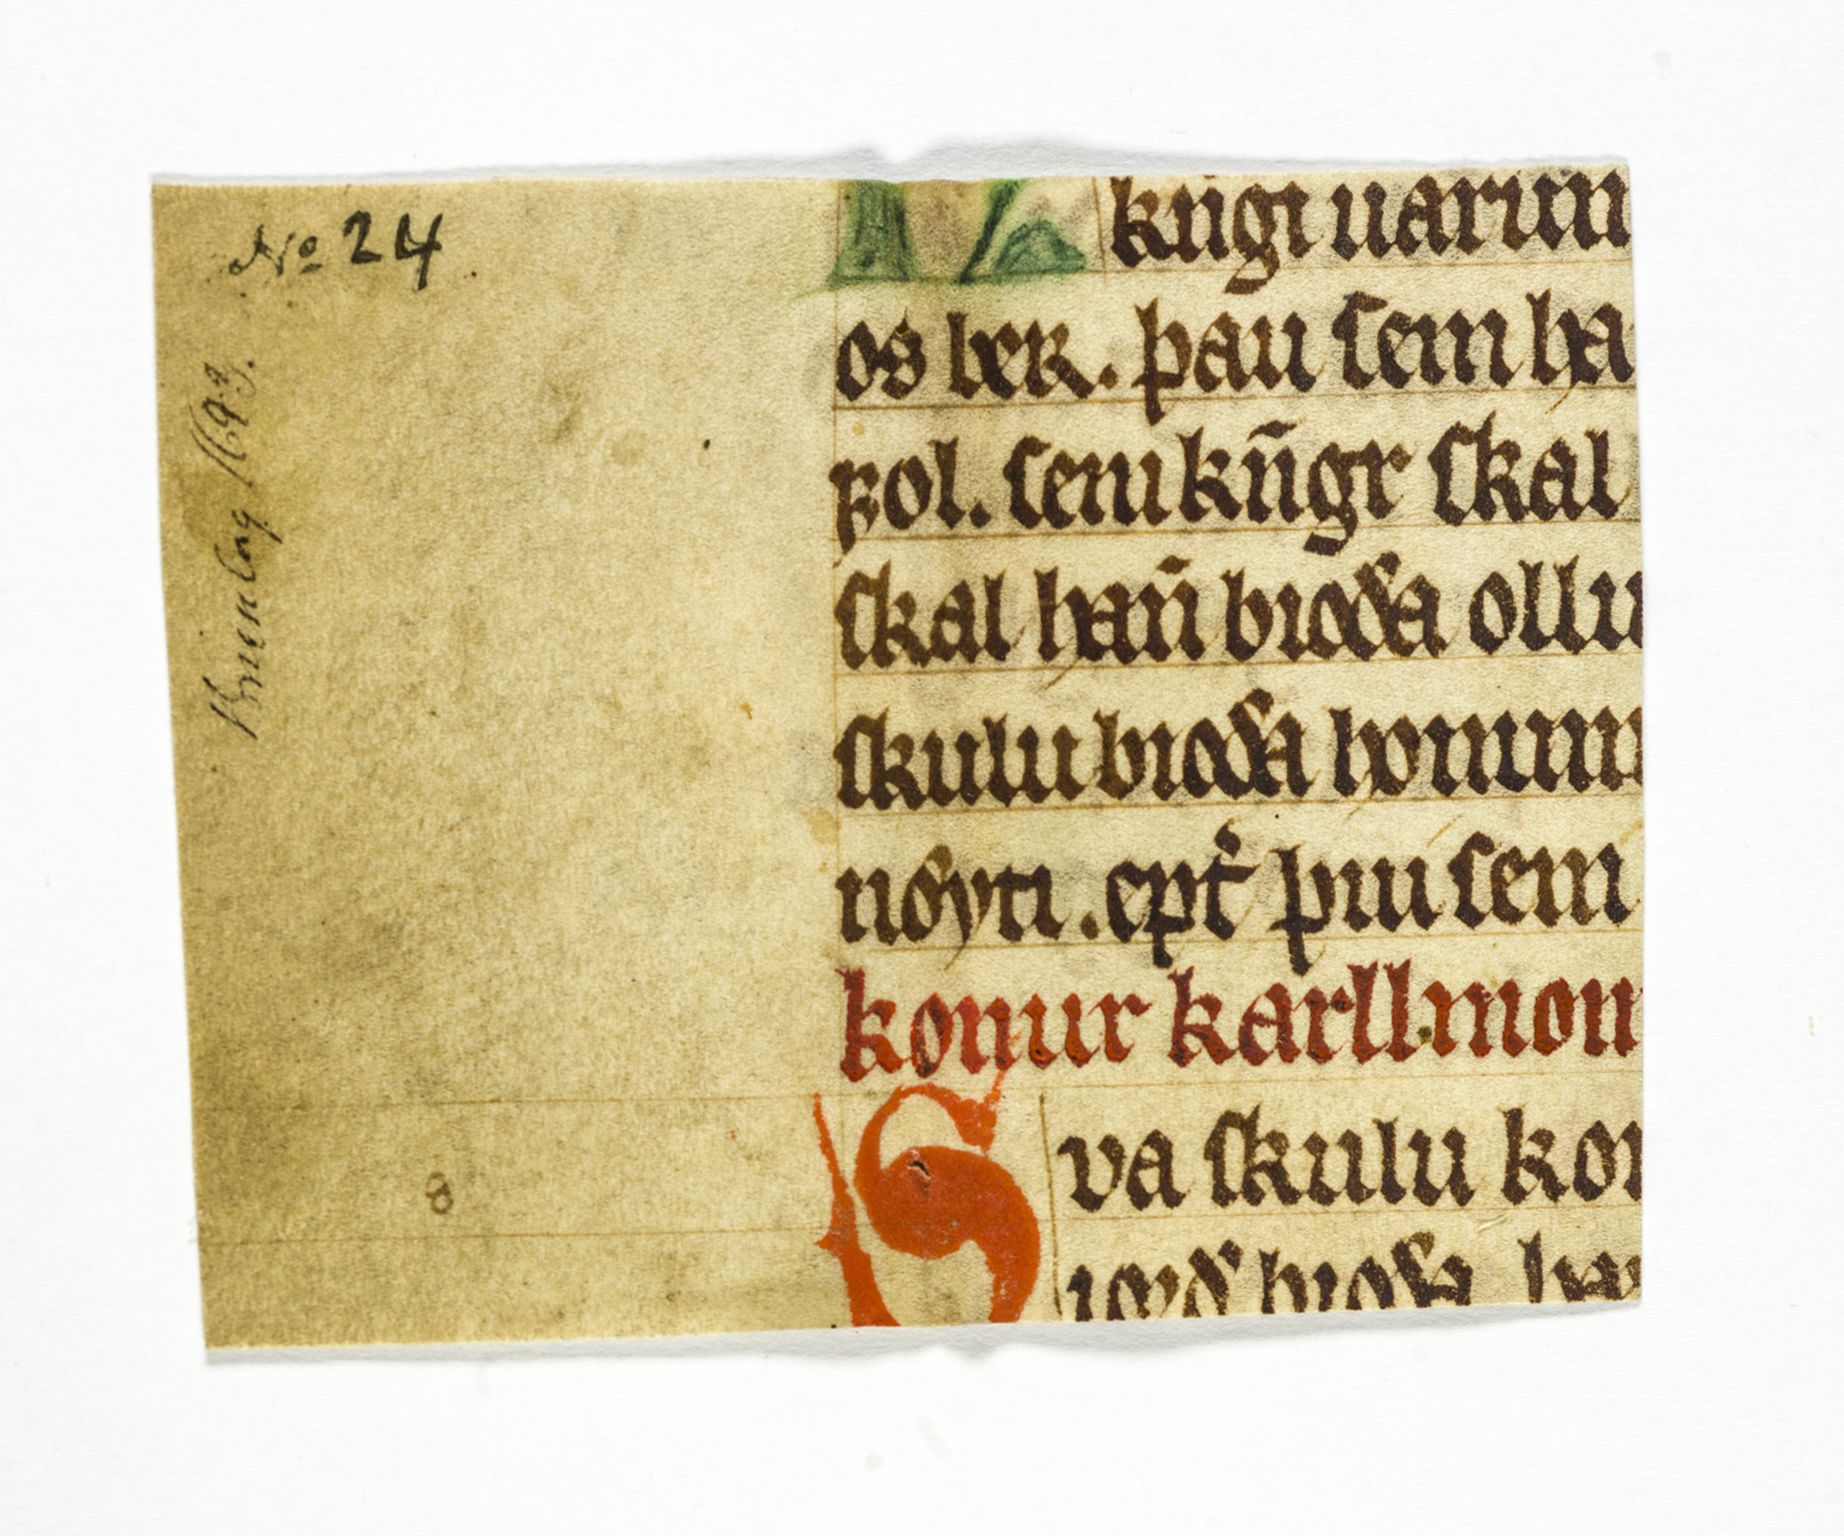 No 24
Bruenlag 1693.
kn̄gi uarum
os ber. þau ſem ha
ꝼol. ſem kn̄gr ſkal
ſkal han̄ bioða ollu
ſkulu bioða honum
nóyti. epꞇ͛ þui ſem
konur karllmon
S va ſkulu kon
iorð bioða ha
8